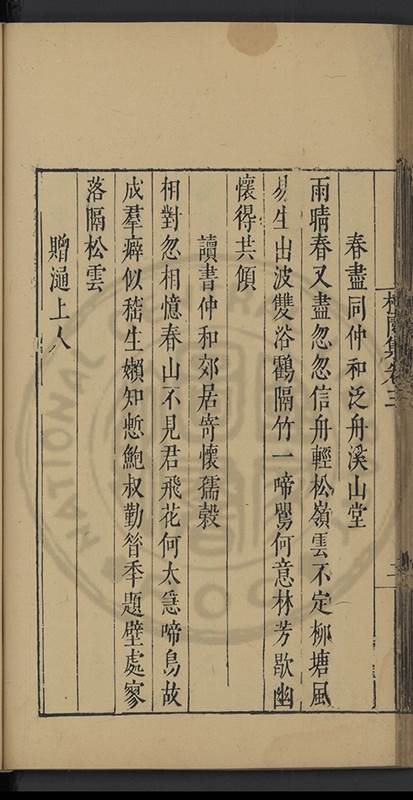 春盡同仲和泛舟溪山堂
雨晴春又盡忽忽信舟輕松嶺雲不定柳塘風
易生出波雙浴鸛隔竹一啼鸎何意林芳歇幽
懷得共傾
讀書仲和郊居寄懷孺穀
相對忽相憶春山不見君飛花何太急啼鳥故
成羣癖似嵇生嬾知慙鮑叔勤昝季題壁處寥
落隔松雲
贈
上人